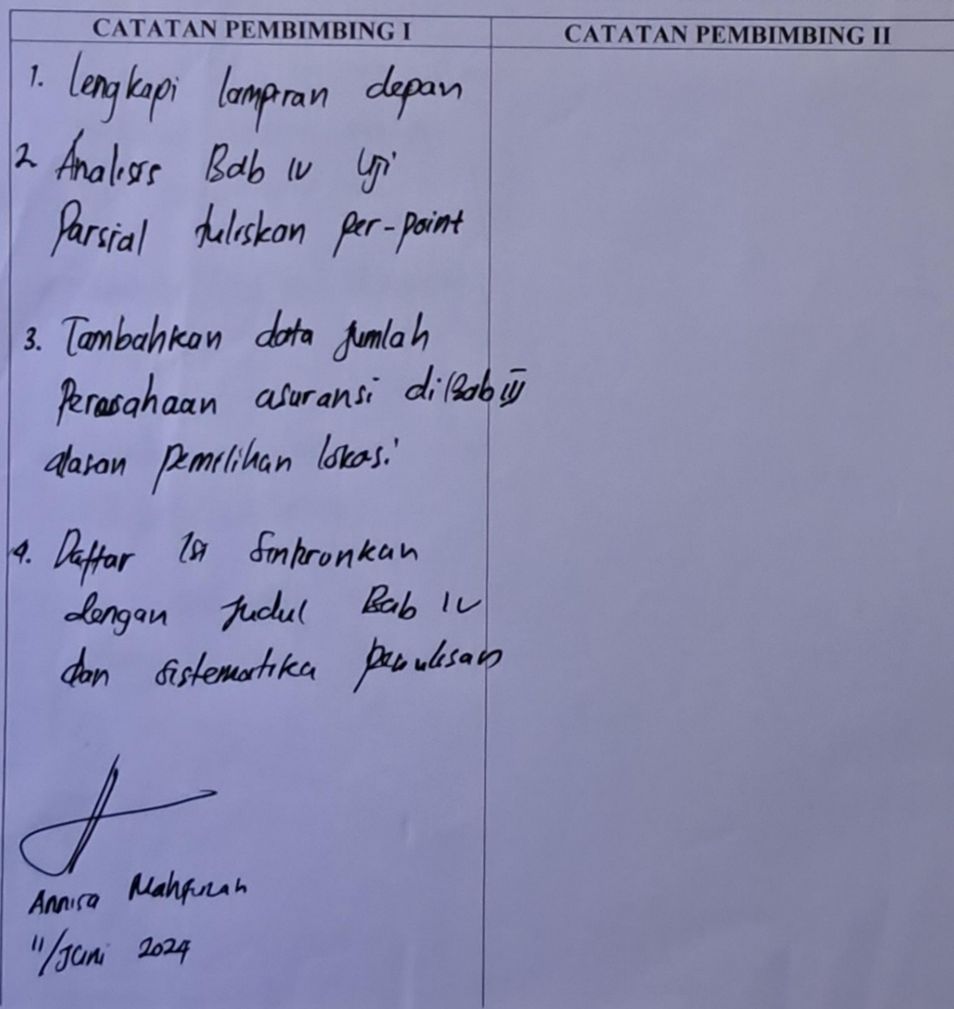 CATATAN PEMBIMBING I
CATATAN PEMBIMBING II
1. Lengkapi lampiran depan
2 Analisis Bab IV Uji
Parsial tuliskan per-point
3. Tambahkan data jumlah
Perusahaan asuransi di Bab III
alasan pemilihan lokasi
4. Daftar Isi Sinkronkan
dengan judul Bab IV
dan sistematika penulisan
Annisa Mahfuzah
11/Juni 2024